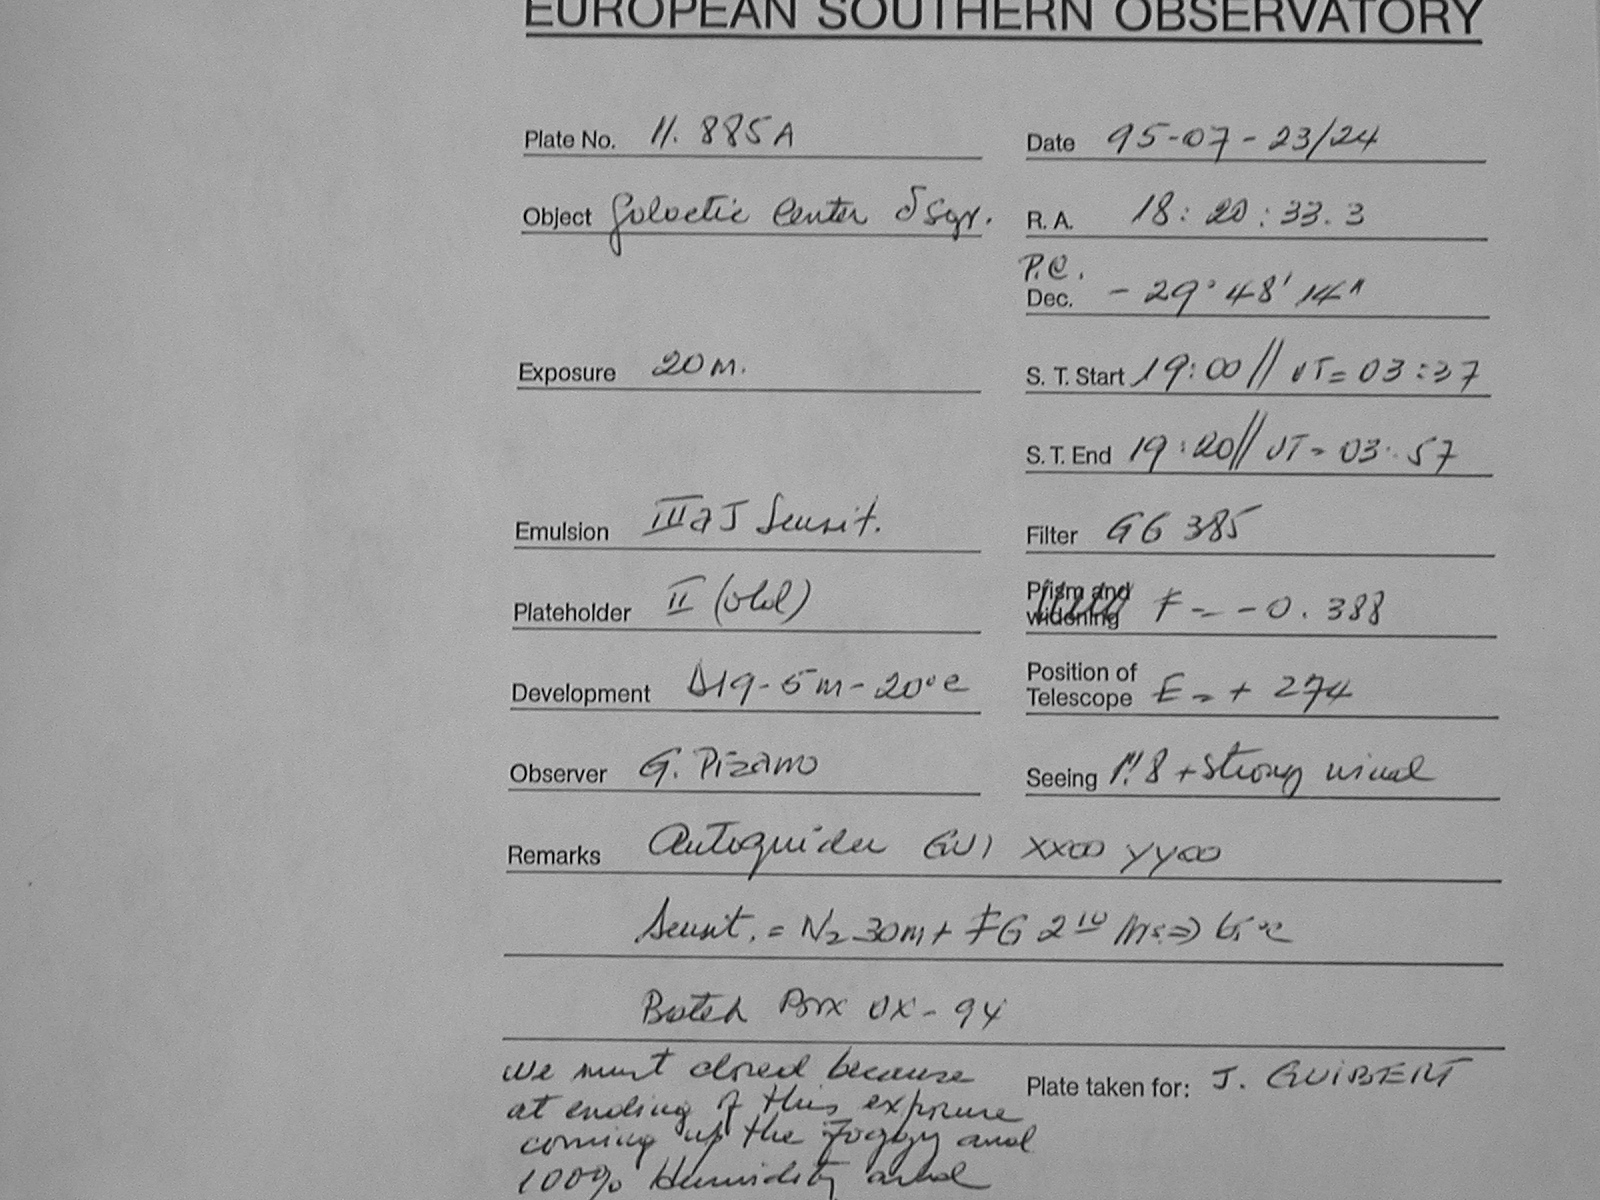 EUROPEAN SOUTHERN OBSERVATORY
Plate No. 11.885A Date 95-07-23/24
Object Galactic Center δ Sgr. R. A. 18:20:33.3
P.C.
Dec. -29°48'14"
Exposure 20m. S. T. Start 19:00// UT=03:37
S. T. End 19:20// UT=03:57
Emulsion IIIaJ Sensit. Filter GG 385
Plateholder II (old) Prism and widening F = -0.388
Development D19-5m-20°C Position of Telescope E = + 274
Observer G. Pizarro Seeing 1".8 + Strong wind
Remarks Autoguider GU1 XX00 YY00
Sensit. = N2 30m + FG 2
Batch Box 0X-94
we must closed because Plate taken for: J. GUIBERT
at ending of this exposure
coming up the foggy and
100% Humidity and